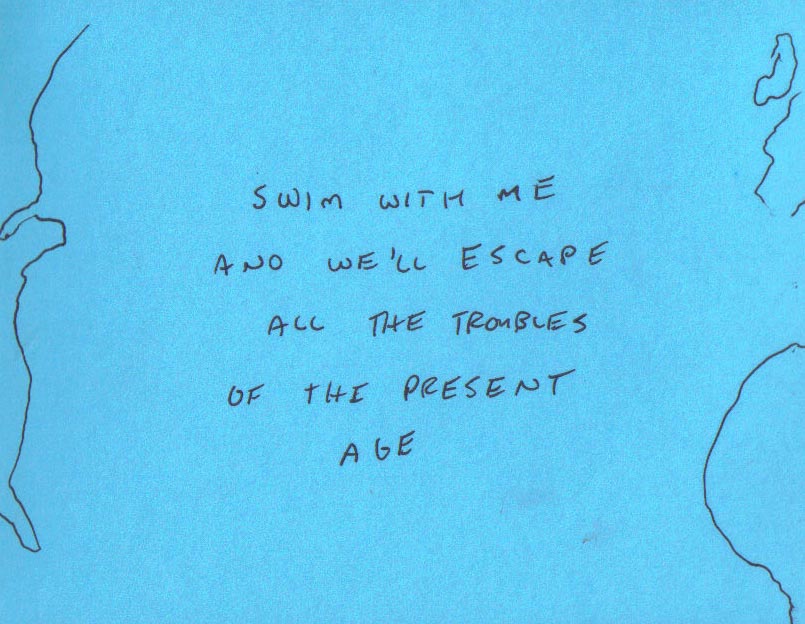 SWIM WITH ME
AND WE'LL ESCAPE
ALL THE TROUBLES
OF THE PRESENT
AGE